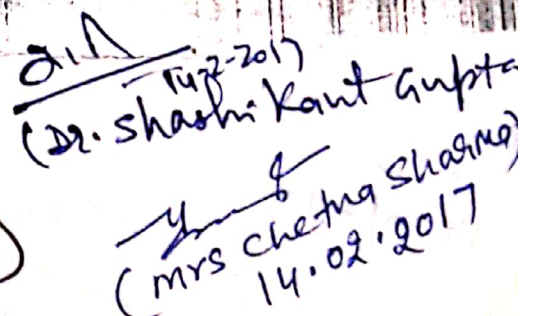 14-2-2017
(Dr. Shashi Kant Gupta
(Mrs Chetna Sharma)
14.02.2017